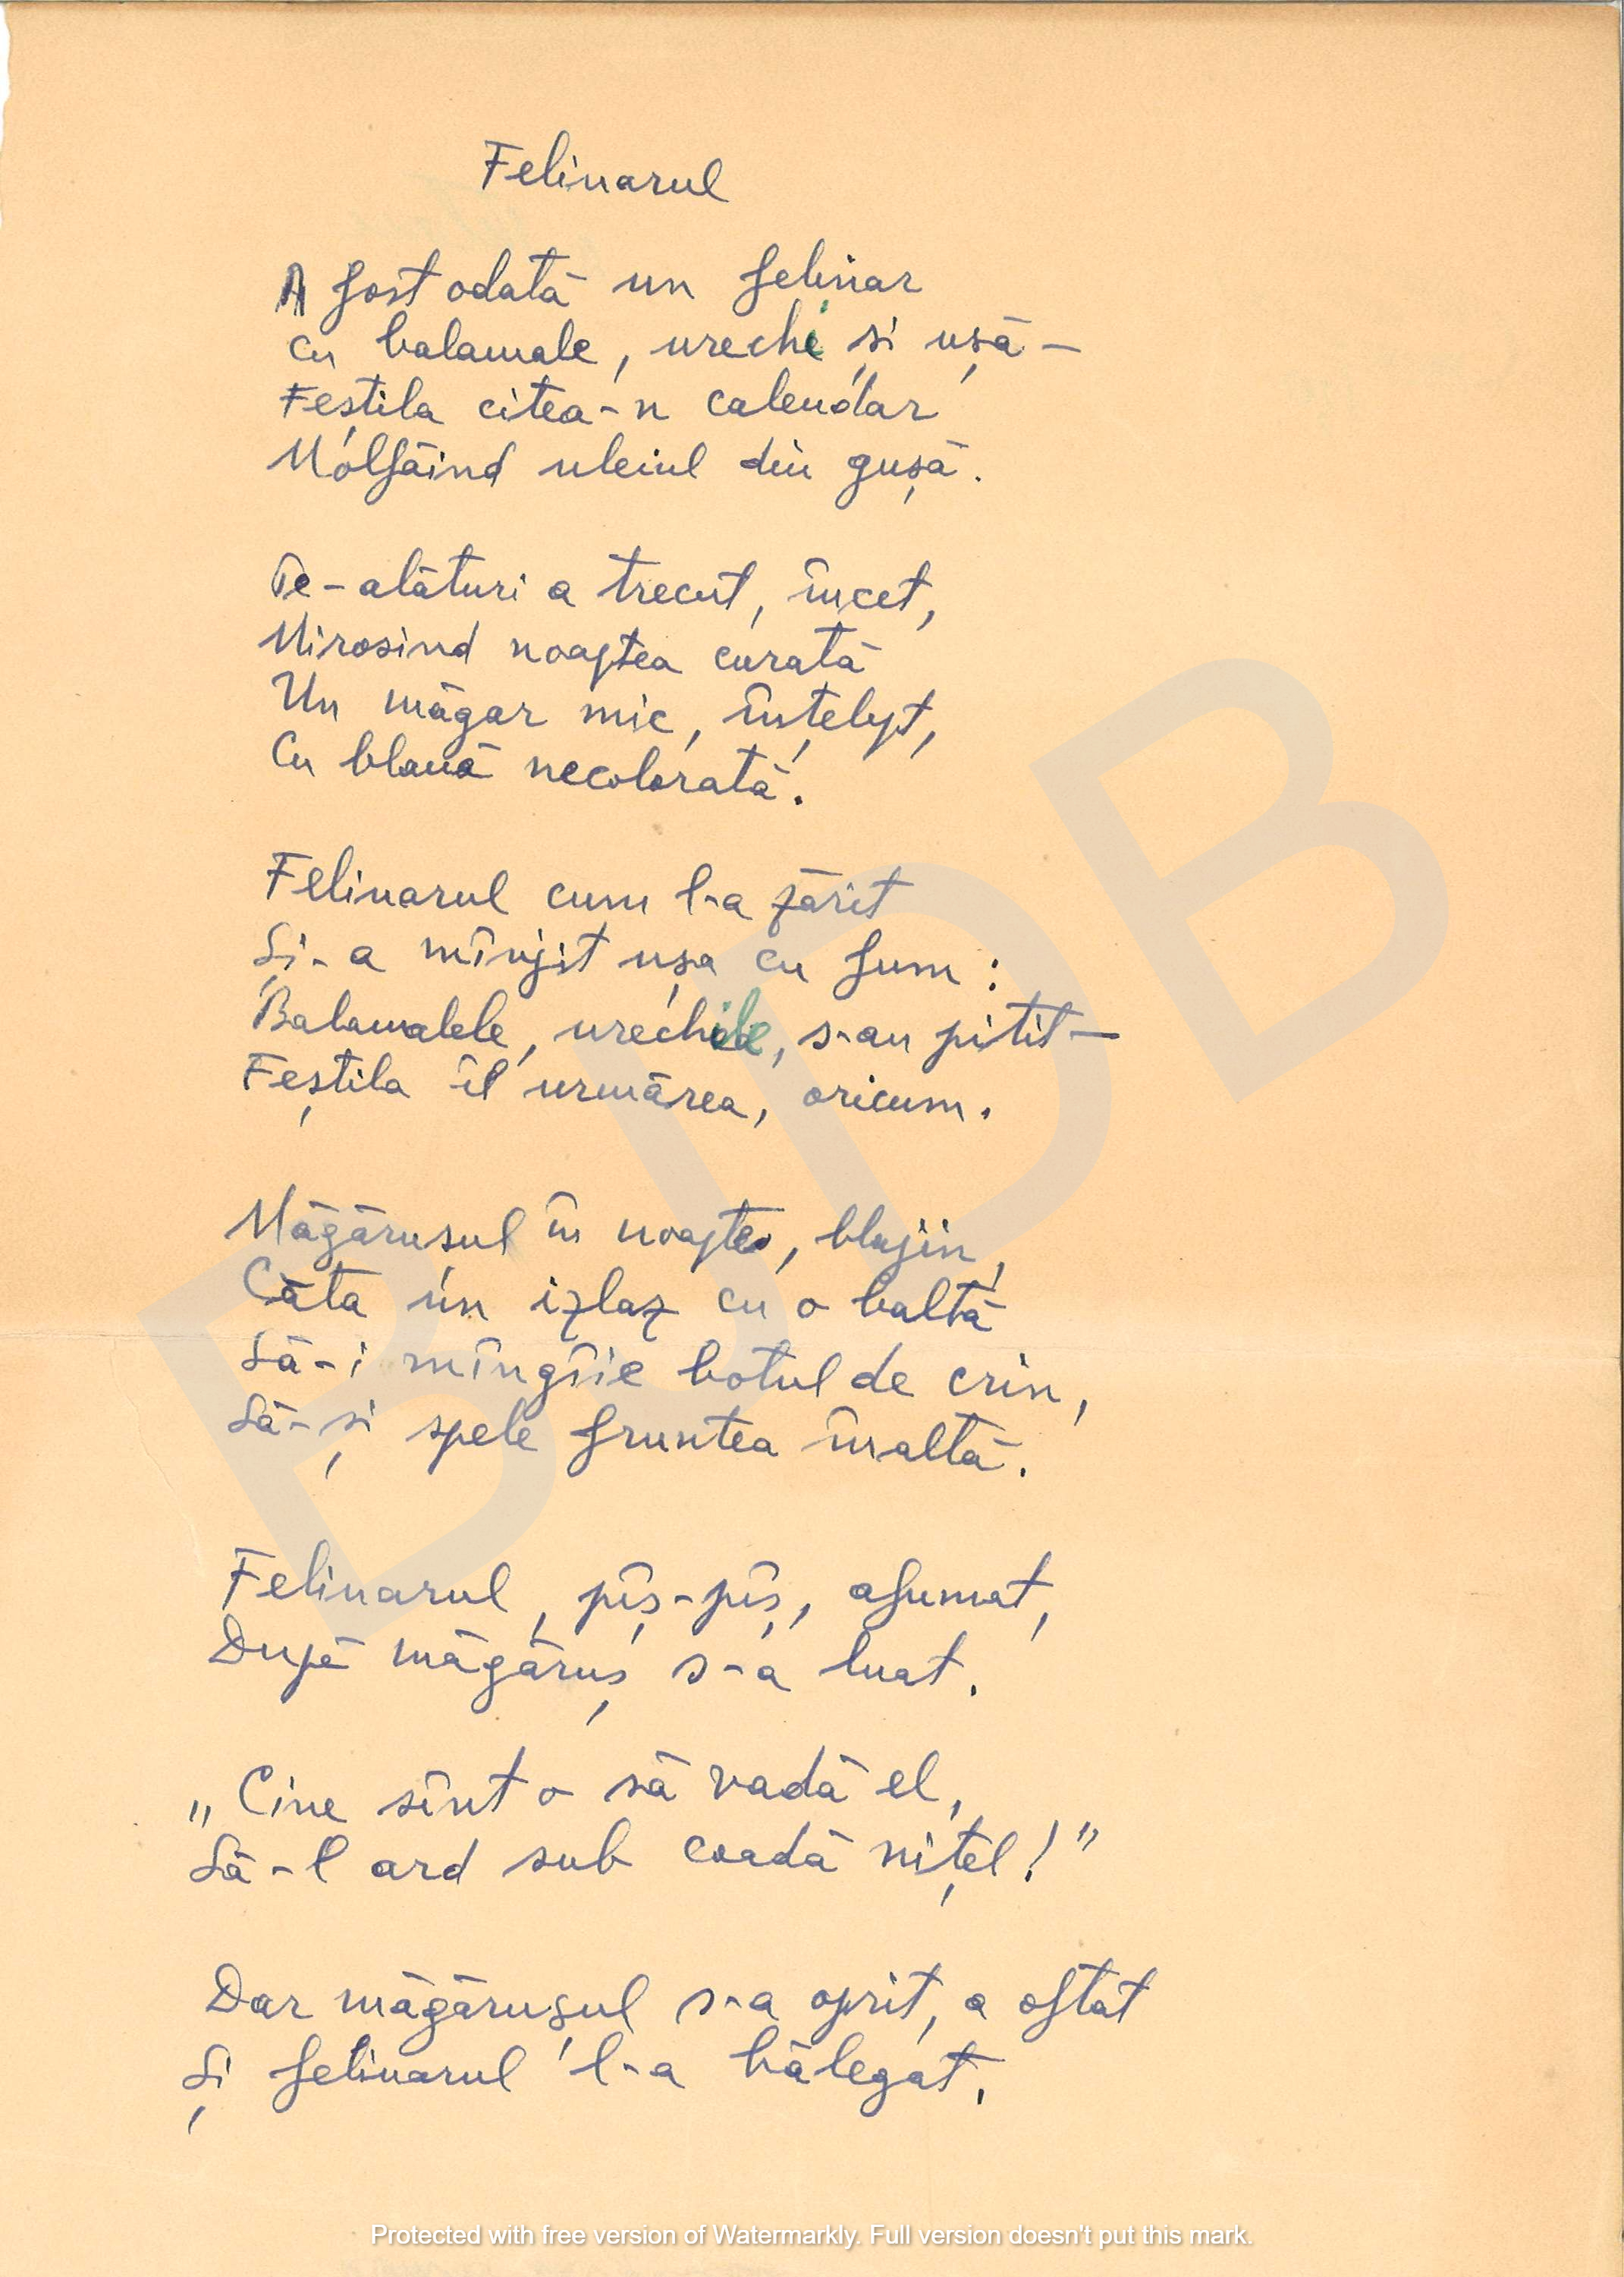 Felinarul
A fost odată un felinar
cu balamale, urechi și ușă –
Feștila citea-n calendar
Molfăind uleiul din gușă.
Pe-alături a trecut, încet,
Mirosind noaptea curată
Un măgar mic, înțelept,
Cu blană necolorată.
Felinarul cum l-a zărit
Și-a mînjit ușa cu fum :
Balamalele, urechile, s-au pitit –
Feștila îl urmărea, oricum.
Măgărușul în noapte, blajin,
Căta un izlaz cu o baltă
Să-i mîngîie botul de crin,
Să-și spele fruntea înaltă.
Felinarul, pîș-pîș, afumat,
După măgăruș s-a luat.
„Cine sînt o să vadă el,
Să-l ard sub coadă nițel!”
Dar măgărușul s-a oprit, a oftat
Și felinarul l-a bălegat.
BJDB
Protected with free version of Watermarkly. Full version doesn't put this mark.